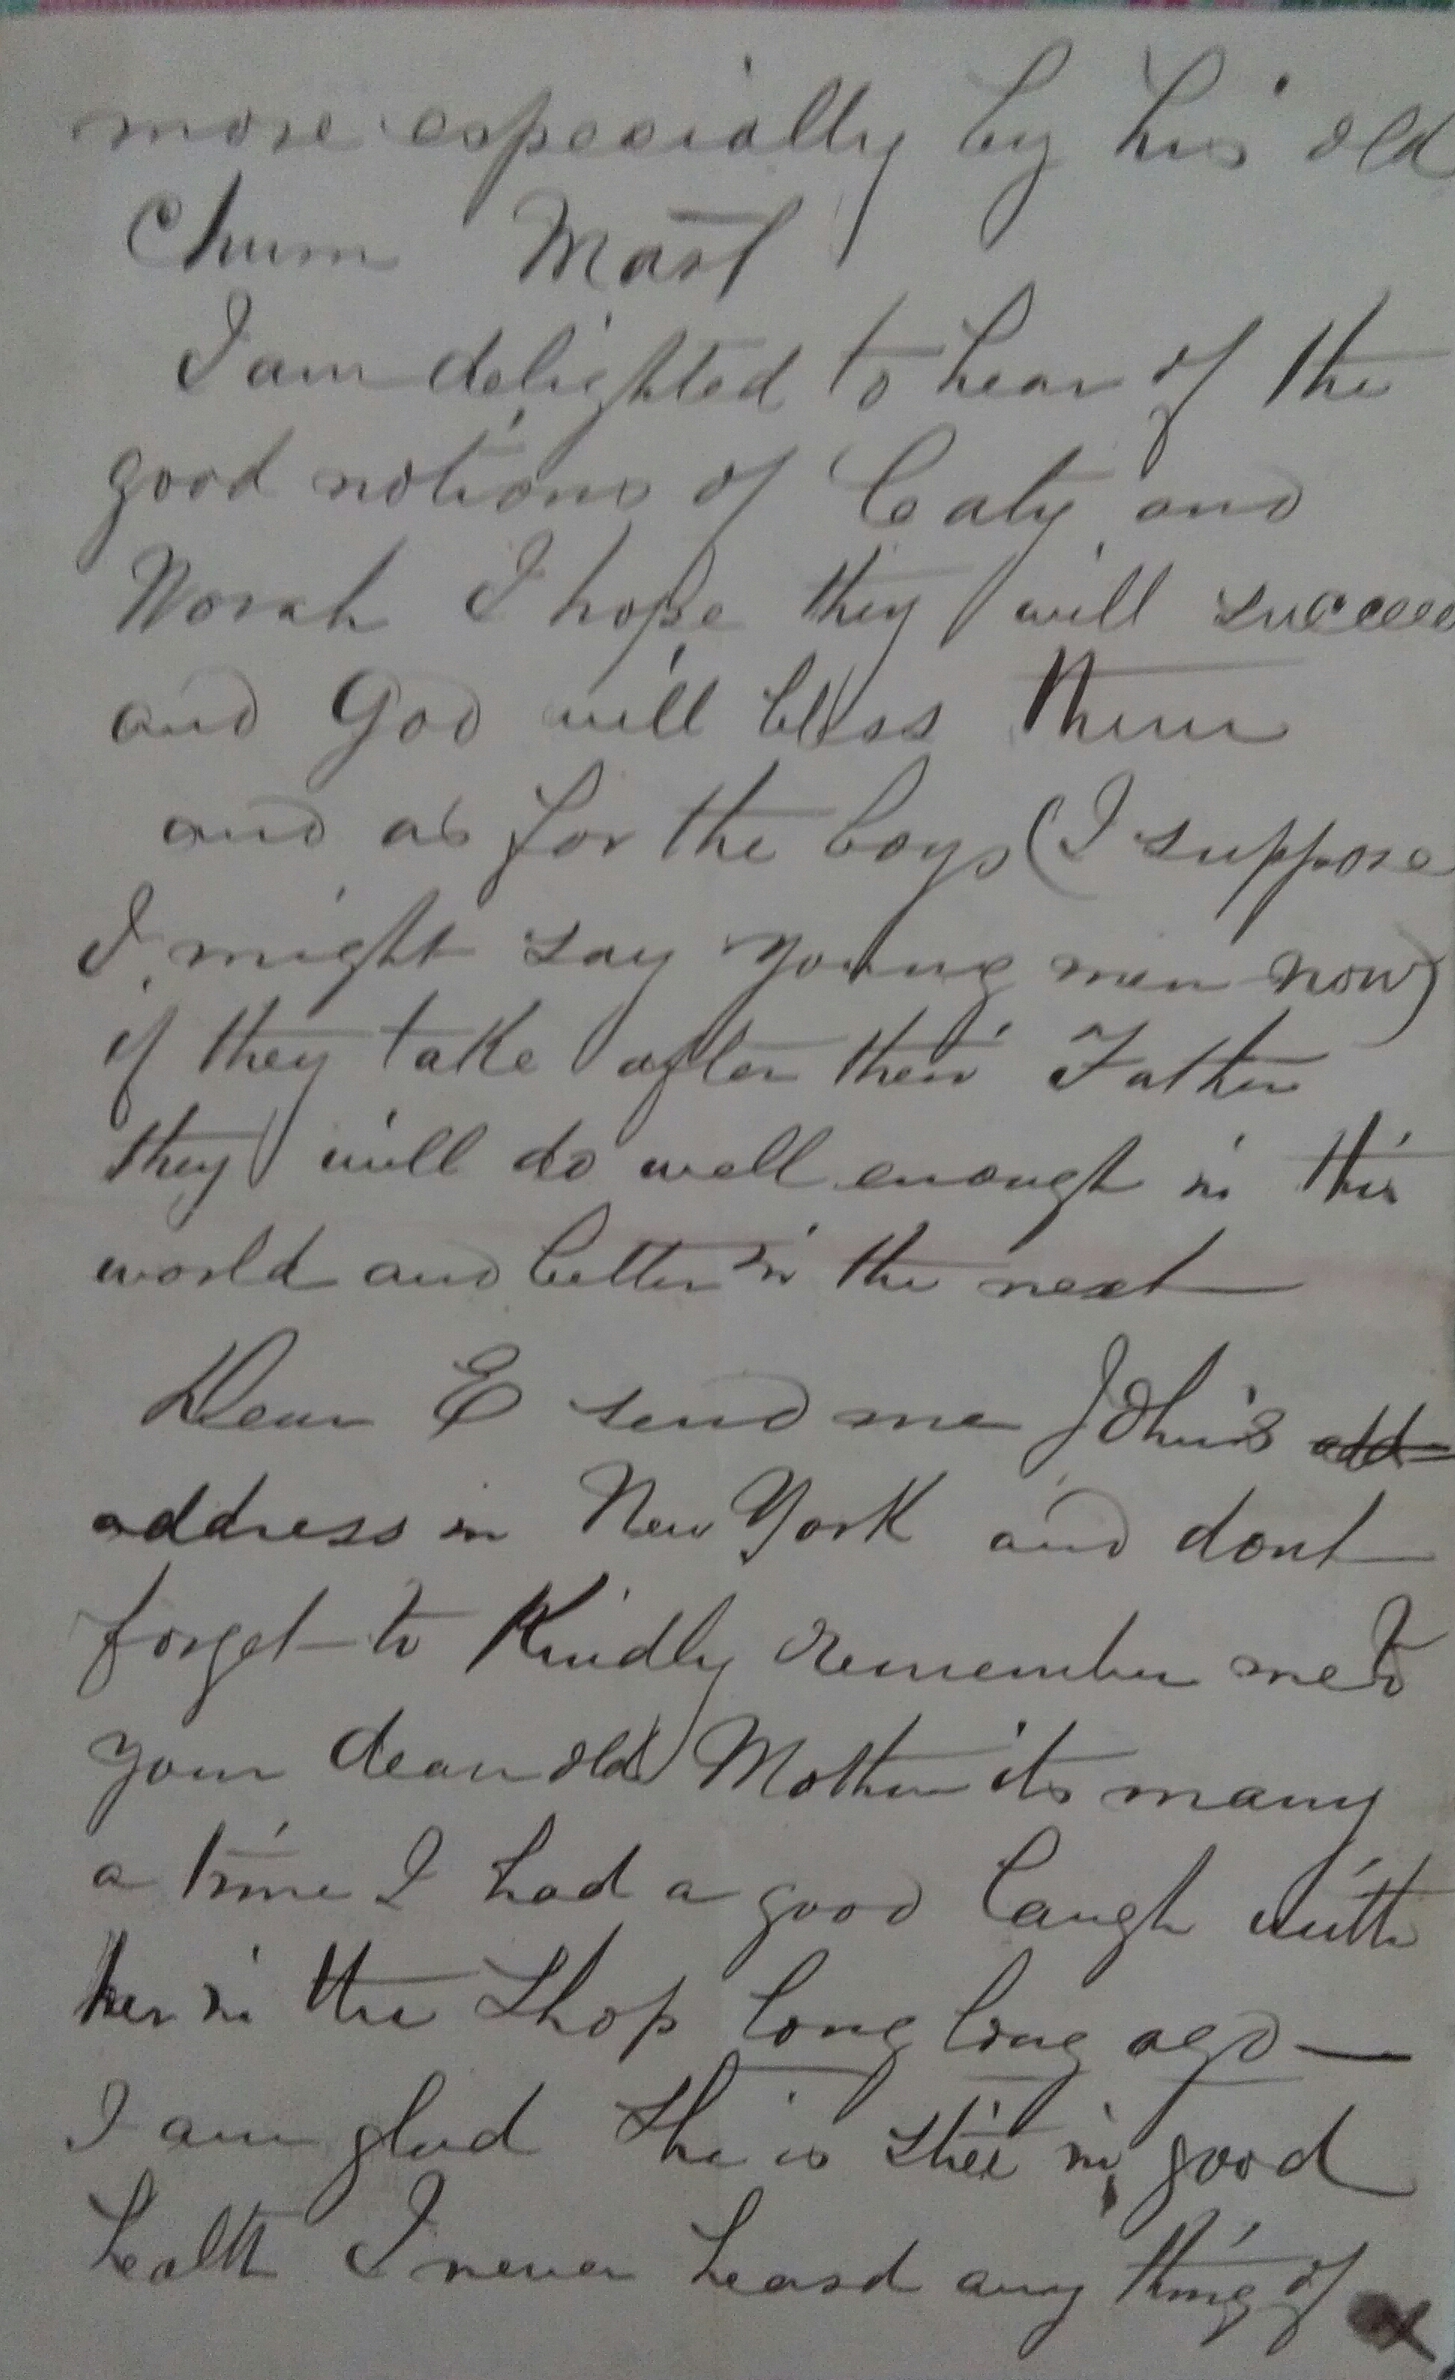 more especially by his old
Chum Mast
I am delighted to hear of the
good notions of Caty and
Norah I hope they will succeed
and God will bless them
and as for the boys (I suppose
I might say young men now)
if they take after their Father
they will do well enough in this
world and better in the next
Dear E send me John's add
address in New York and dont
forget to Kindly remember me to
your dear old Mother its many
a time I had a good laugh with
her in the Shop long long ago —
I am glad she is still in good
health I never heard any thing of